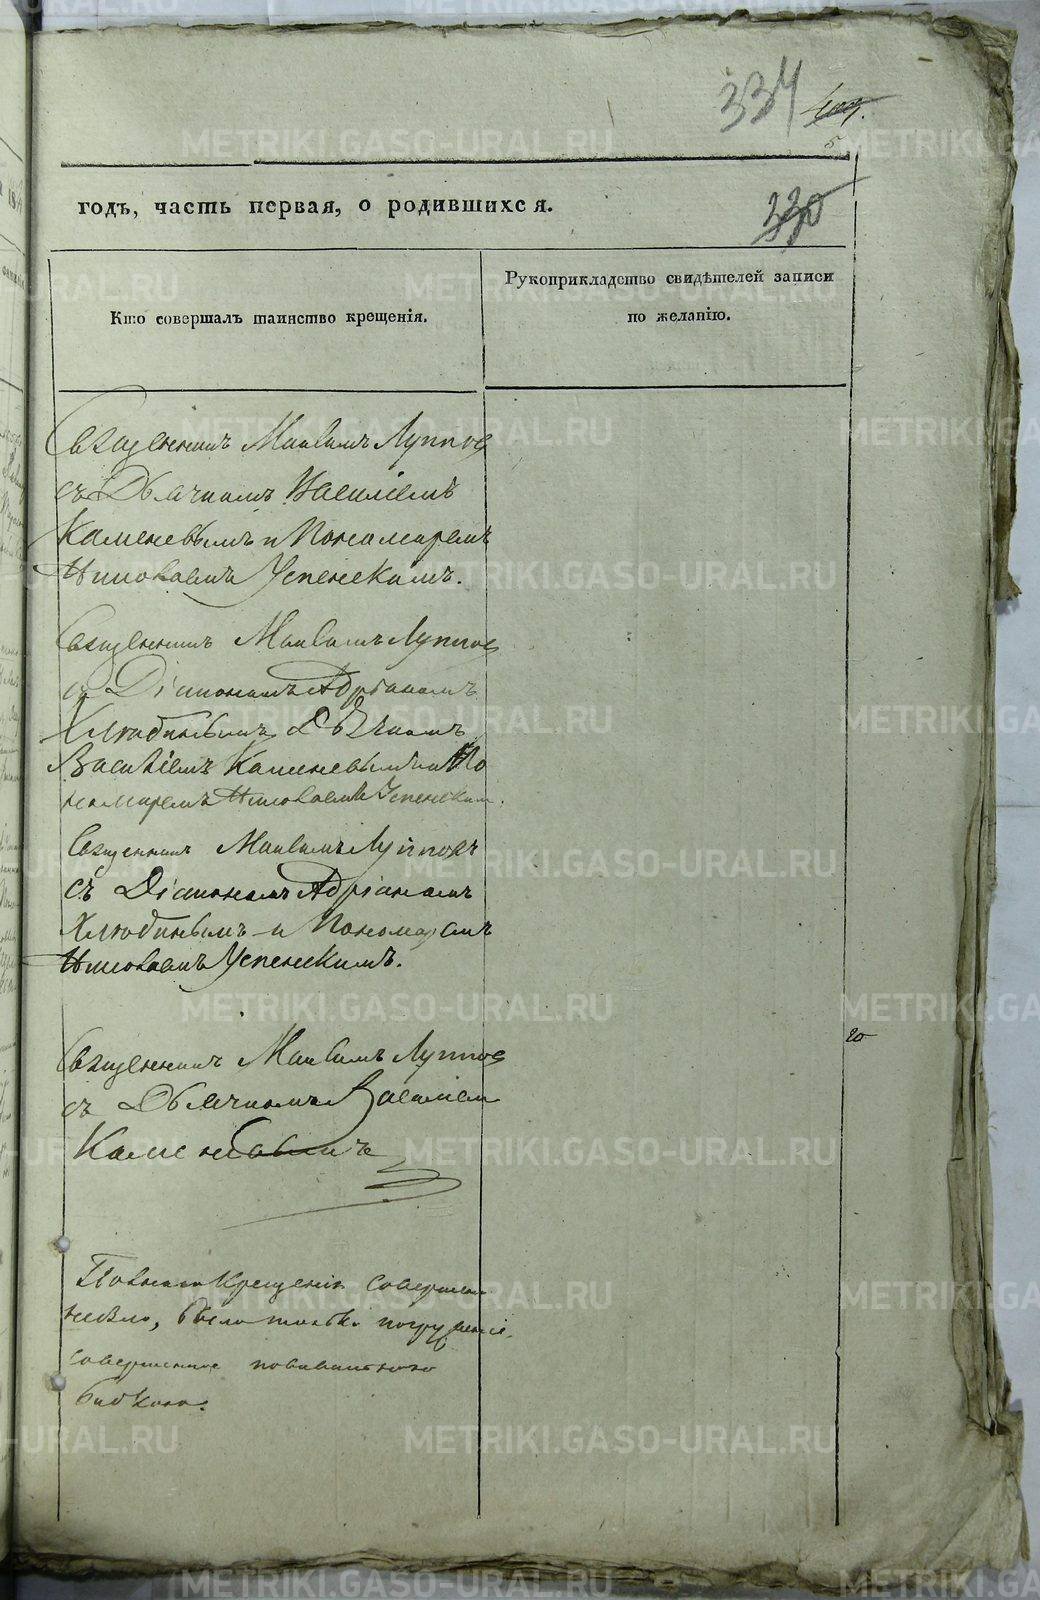 334
5
годъ, часть первая, о родившихся.
330
Кто совершалъ таинство крещенія.
Рукоприкладство свидѣтелей записи
по желанію.
Священникъ Максимъ Луппов
съ Дьячкомъ Василіемъ
Каменевымъ и Пономаремъ
Николаемъ Успенскимъ.
Священникъ Максимъ Луппов
съ Діакономъ Адріаномъ
Хлюбинымъ Дьячкомъ
Василіемъ Каменевымъ и По
номаремъ Николаемъ Успенским.
Священникъ Максимъ Лупповъ
съ Діакономъ Адріаномъ
Хлюбинымъ и Пономаремъ
Николаемъ Успенскимъ.
20
Священникъ Максимъ Луппов
съ Дьячкомъ Василіем
Каменевымъ
Крещенія совершен
было только погруженіе,
совершенное повивальною
бабкою.
METRIKI.GASO-URAL.RU